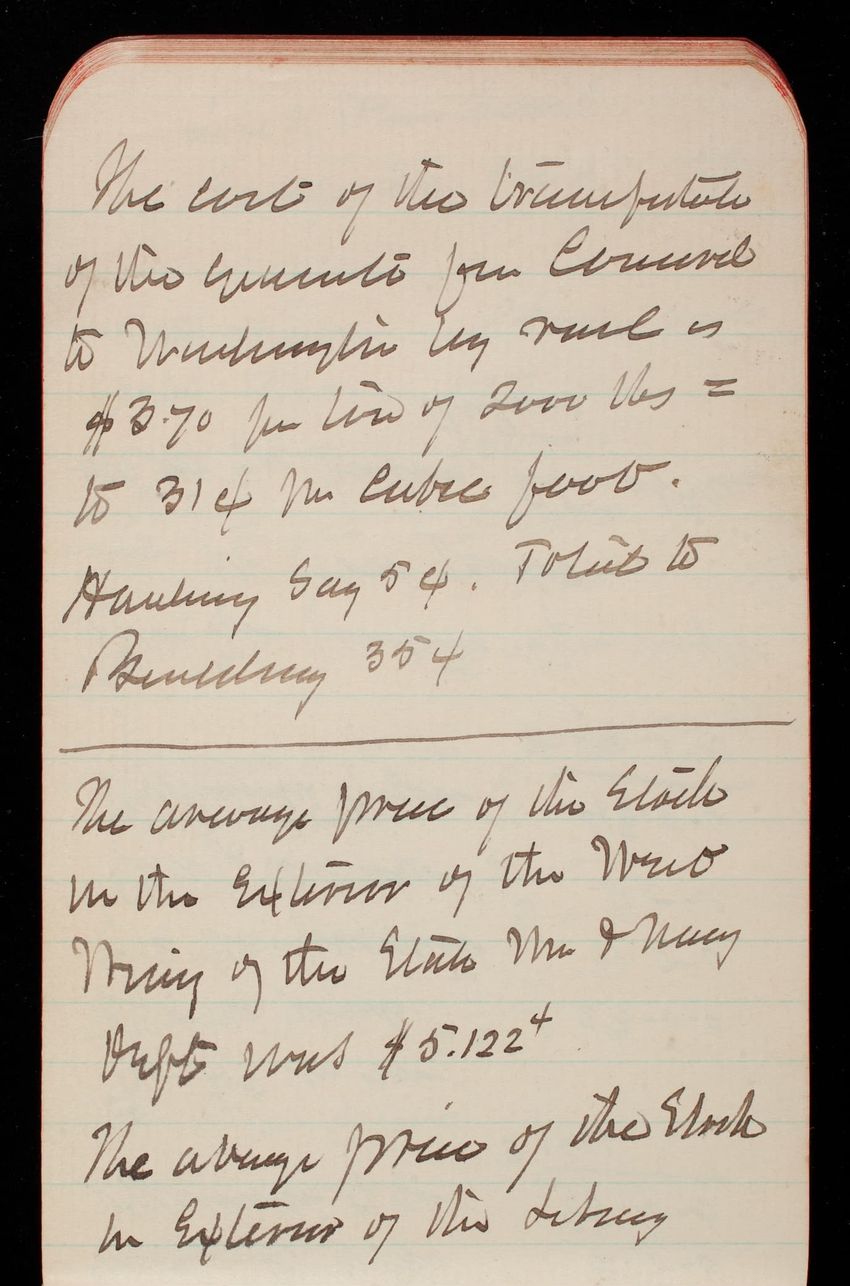 The cost of the transportation
of the granite from Concord
to Washington by rail is
$3.70 per ton of 2000 lbs =
to 31¢ per cubic foot.
Hauling say 5¢. Total to
Building 35¢
The average price of the Stock
in the Exterior of the West
Wing of the State War & Navy
Dept was $5.122+
The average price of the Stock
in Exterior of the Library